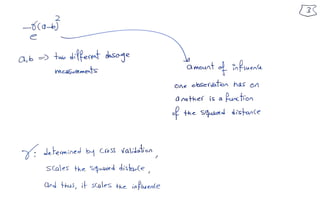 3
e^{-γ(a-b)^2}
a,b => two different dosage
measurements
amount of influence
one observation has on
another is a function
of the squared distance
γ: determined by cross validation,
scales the squared distance,
and thus, it scales the influence